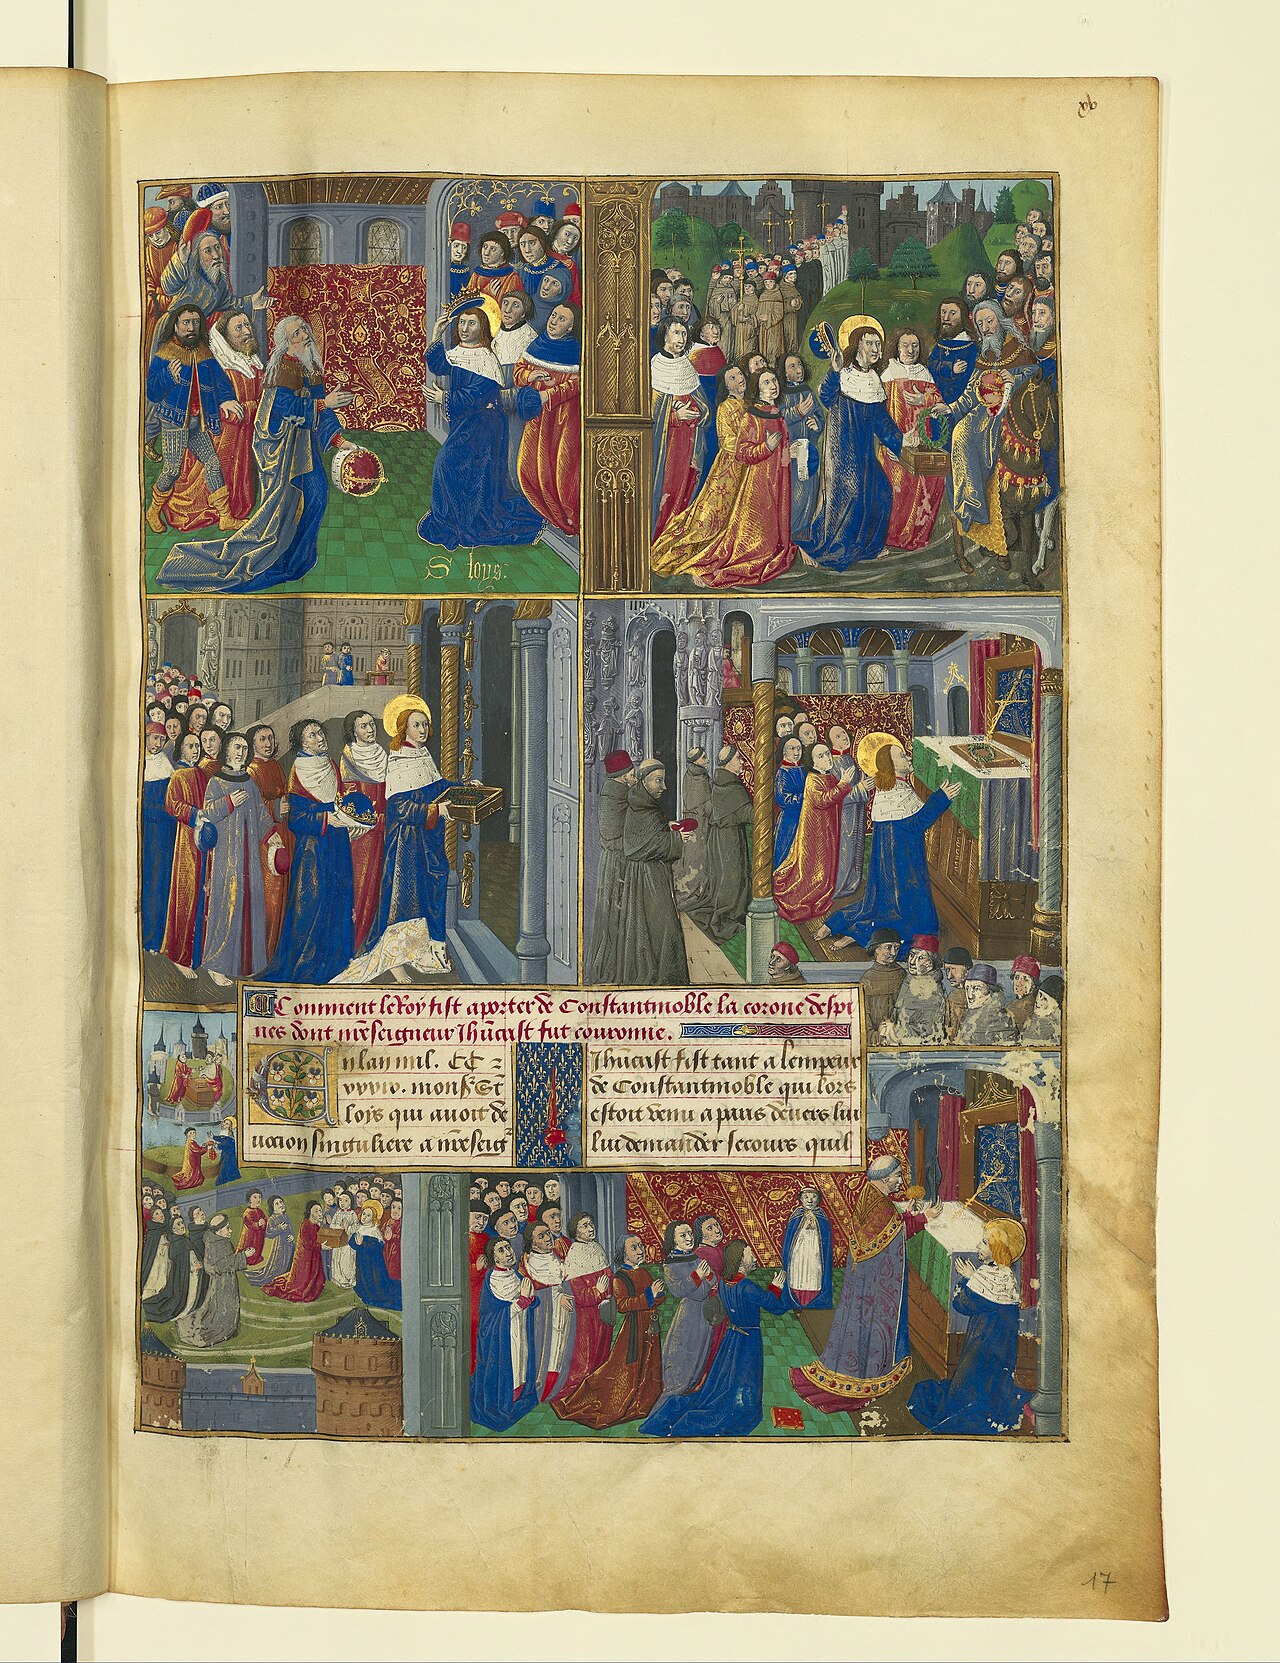 xv
S loys.
Comment le Roy fist aporter de Constantinoble la corone despi
nes dont nr̃e seigneur Ihũcrist fut couronne.
En lan mil. CC
xxxix. mons̃ St
loys qui avoit de
uocion singuliere a nr̃e seigr
Ihũcrist fist tant a lempeur
de Constantinoble qui lors
estoit venu a paris deuers lui
lui demander secours quil
17